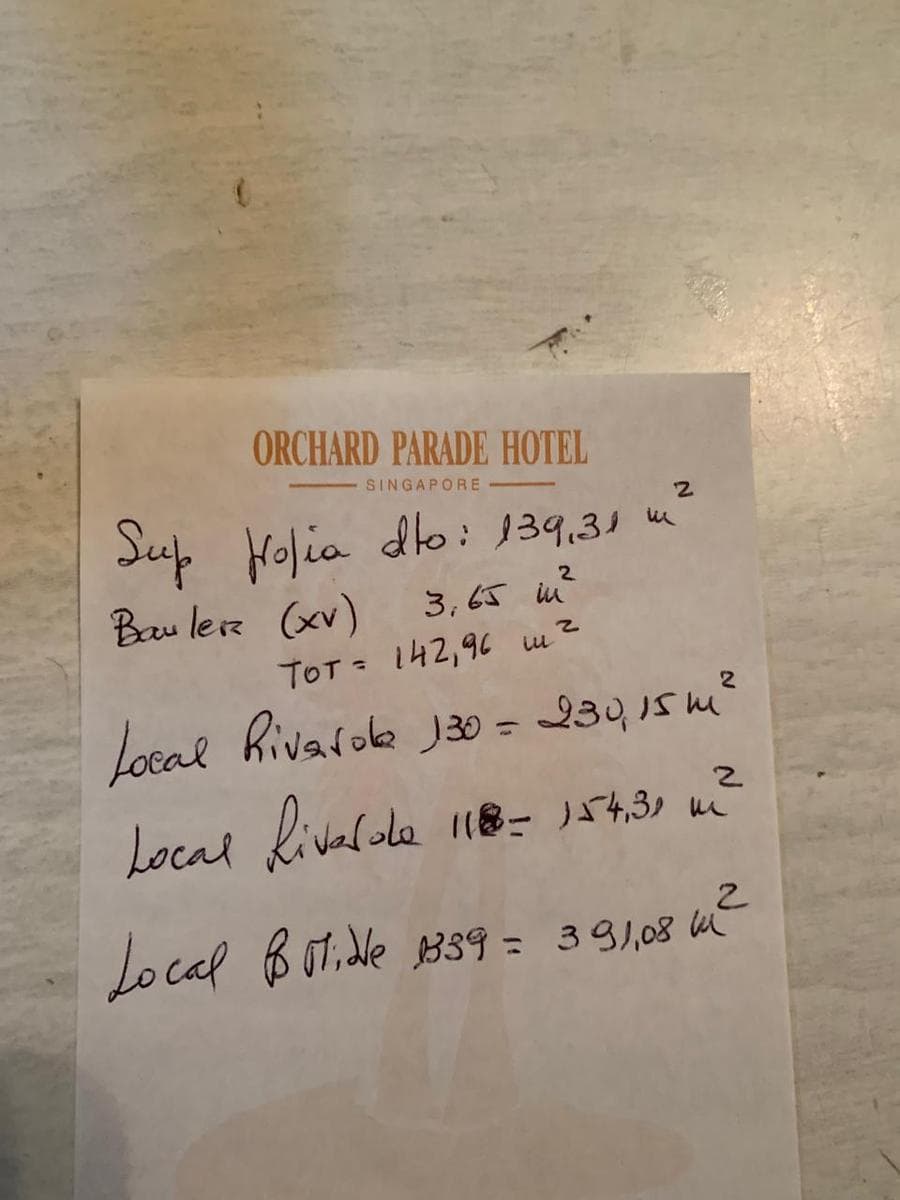 ORCHARD PARADE HOTEL
SINGAPORE
Sup propia dto: 139,31 m²
Baulera (xv) 3,65 m²
TOT = 142,96 m²
Local Rivarola 130 = 230,15 m²
Local Rivarola 118 = 154,31 m²
Local B Mitre 1339 = 391,08 m²